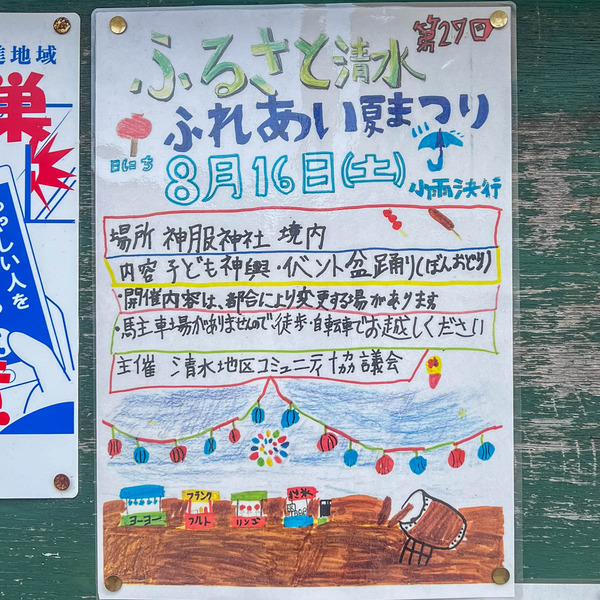 第27回
ふるさと清水
ふれあい夏まつり
日にち
8月16日(土)
小雨決行
場所 神服神社 境内
内容 子ども神輿・イベント 盆踊り(ぼんおどり)
・開催内容は、都合により変更する場があります
・馬主車場がありませんので、徒歩・自転車でお越しください
主催 清水地区コミュニティ協議会
ヨーヨー
フランク
フルト
リンゴ
地域
巣
しい人を